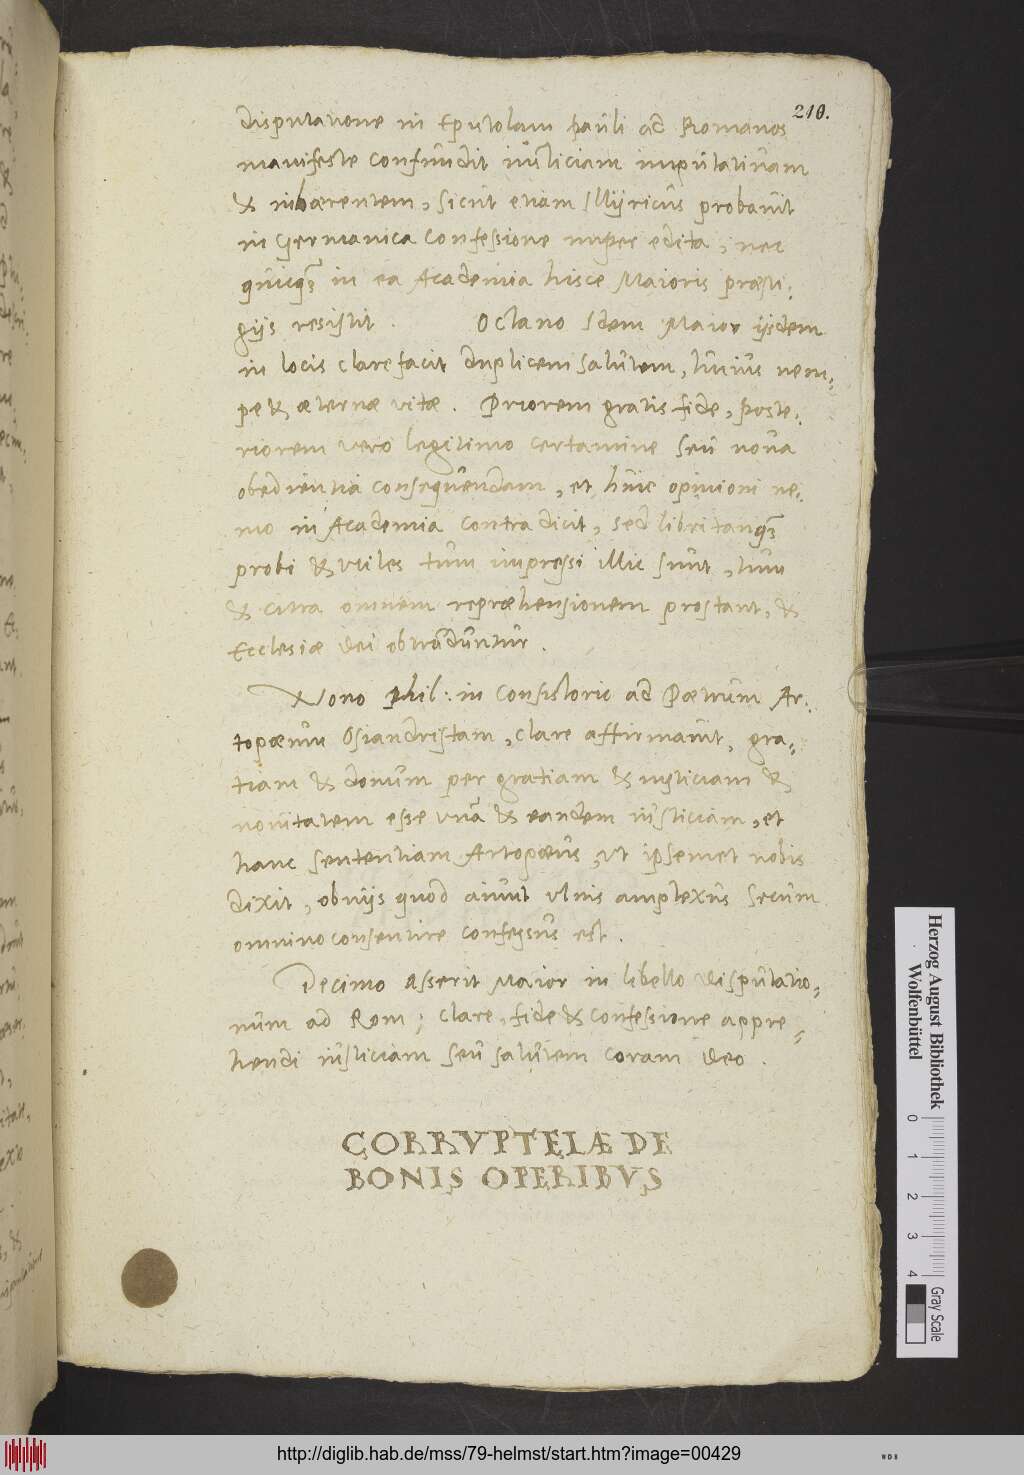 210.
disputatione in Epistolam Pauli ad Romanos
manifeste confundit iusticiam imputatiuam
& inhaerentem, sicut etiam Illyricus probauit
in Germanica confessione nuper edita, nec
quicquam in ea Academia hisce Maioris praesti-
gijs resistit. Octauo Idem Maior ijsdem
in locis clare facit duplicem salutem, huius nem-
pe & aeternae vitae. Priorem gratis fide, poste-
riorem vero legitimo certamine seu noua
obedientia consequendam, et huic opinioni ne-
mo in Academia contradicit, sed libri tanquam
probi & vtiles tum impressi illic sunt, tum
& citra omnem repraehensionem prostant, &
Ecclesiae Dei obtruduntur.
Nono Phil: in Consistorio ad Paetrum Ar-
topaeum Osiandristam, clare affirmauit, gra-
tiam & donum per gratiam & iusticiam &
nouitatem esse vnam & eandem iusticiam, et
hanc sententiam Artopaeus, vt ipsemet nobis
dixit, obuijs quod aiunt vlnis amplexus secum
omnino consentire confessus est.
Decimo asserit Maior in libello disputatio-
num ad Rom: clare, fide & confessione appre-
hendi iusticiam seu salutem coram Deo.
CORRVPTELAE DE
BONIS OPERIBVS
Herzog August Bibliothek
Wolfenbüttel
0 1 2 3 4
Gray Scale
http://diglib.hab.de/mss/79-helmst/start.htm?image=00429